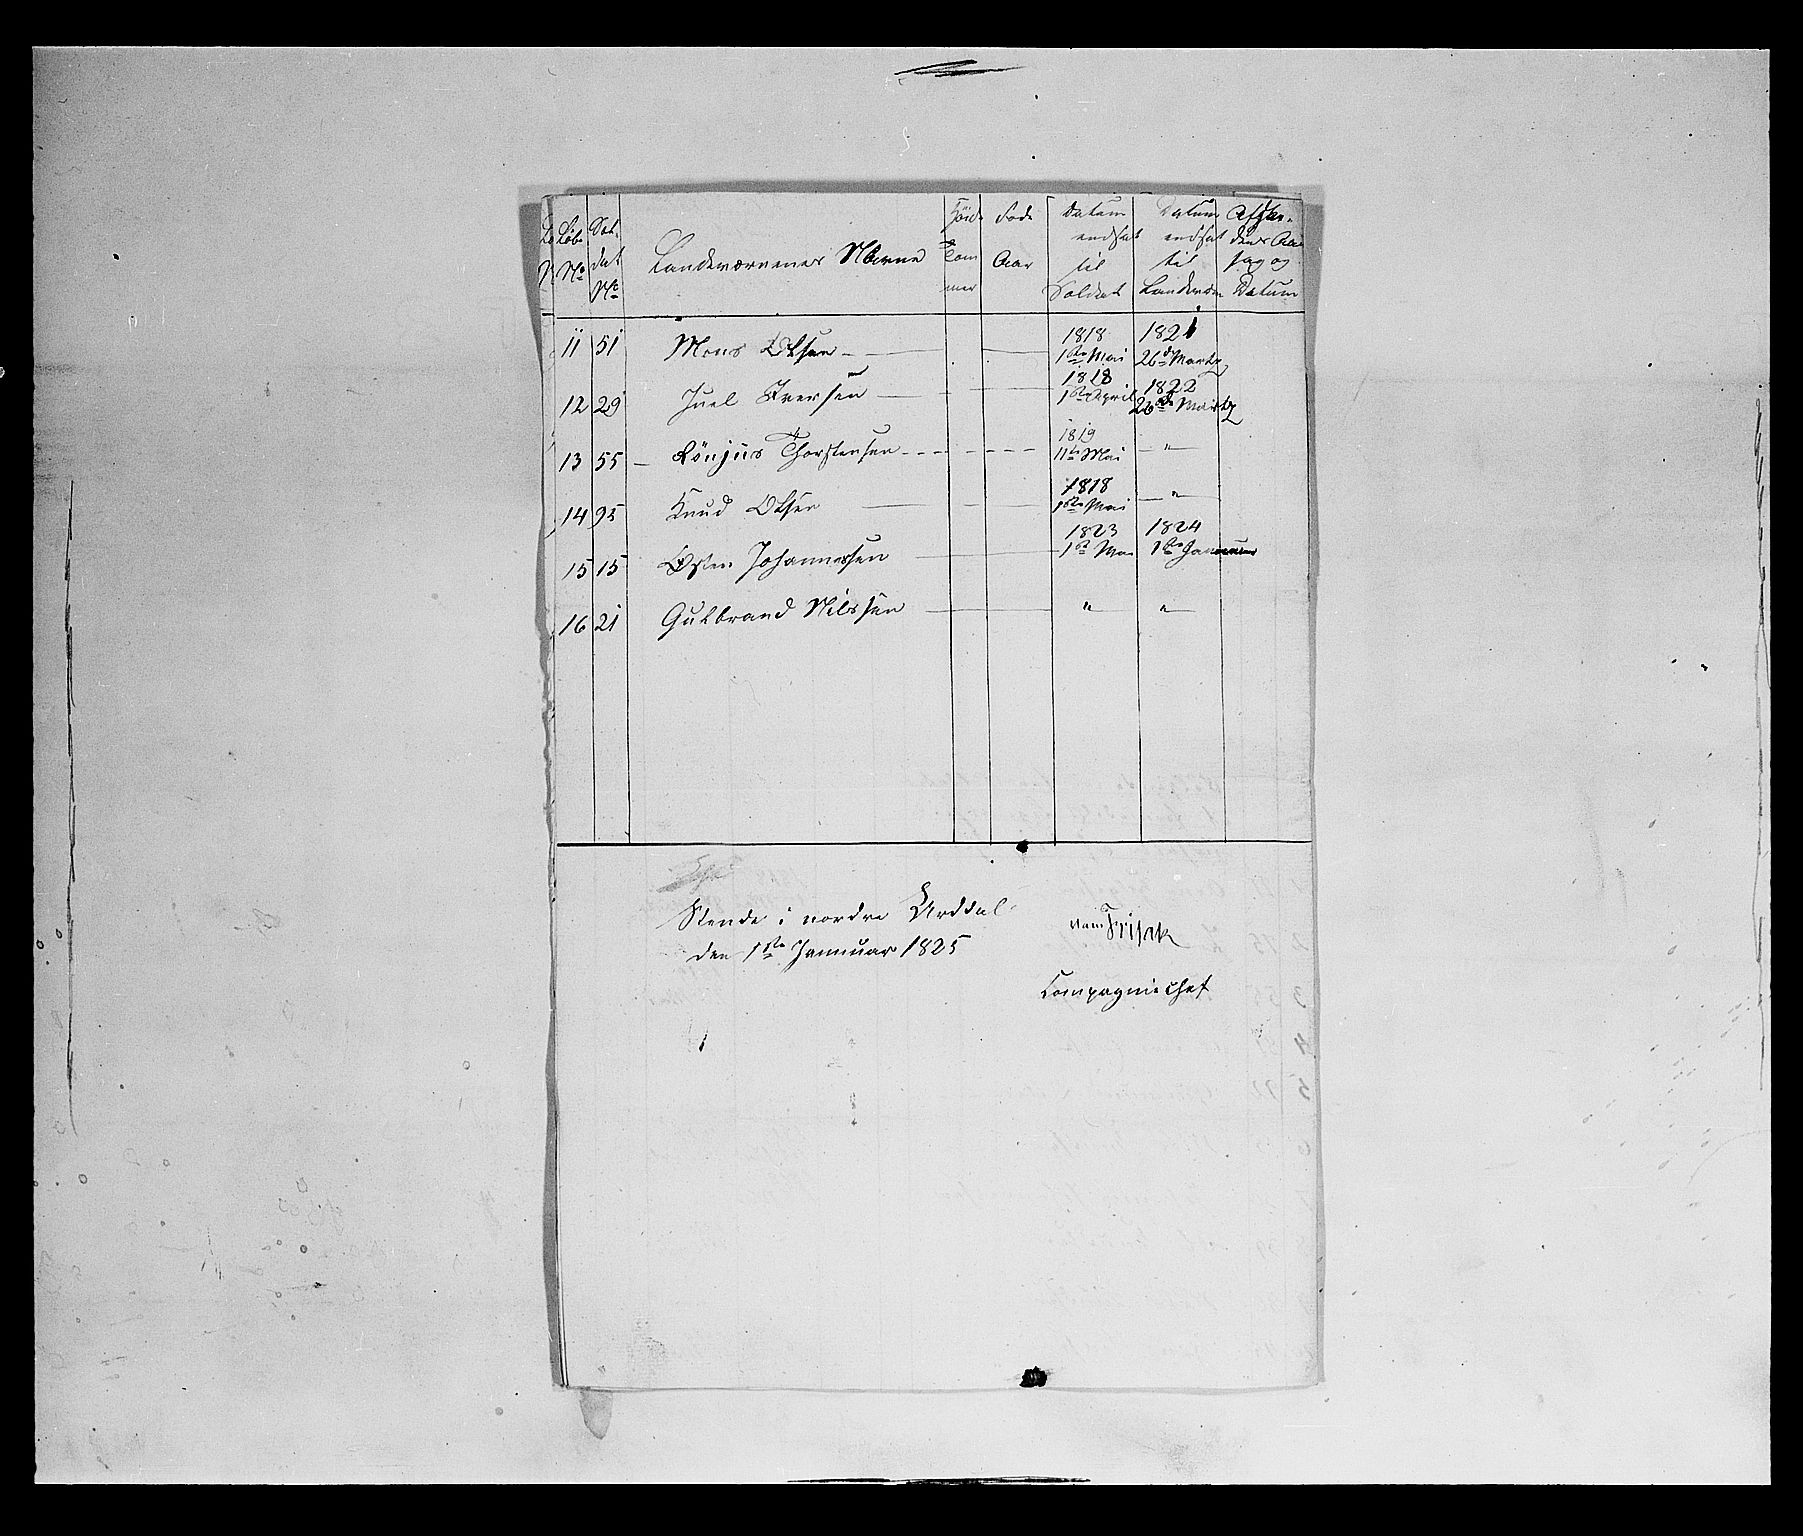 Løbe No | Soldat No | Landeværnenes Navne | Høide Tommer | Føde Aar | Datum endsat til Soldat | Datum endsat til Landeværn | Afskedens Aarsag og Datum
11 | 51 | Mons Olsen | 1818 1ste Mai | 1821 26de Martz
12 | 29 | Juel Iversen | 1818 1ste April | 1822 26de Martz
13 | 55 | Rönjus Thorstensen | 1819 11te Mai | "
14 | 95 | Knud Olsen | 1818 1ste Mai | "
15 | 15 | Østen Johannessen | 1823 1ste Mai | 1824 1ste Januar
16 | 21 | Gulbrand Nilssen | " | "
Stende i nordre Urdal
den 1ste Januar 1825
Frisak
Compagnie Chef